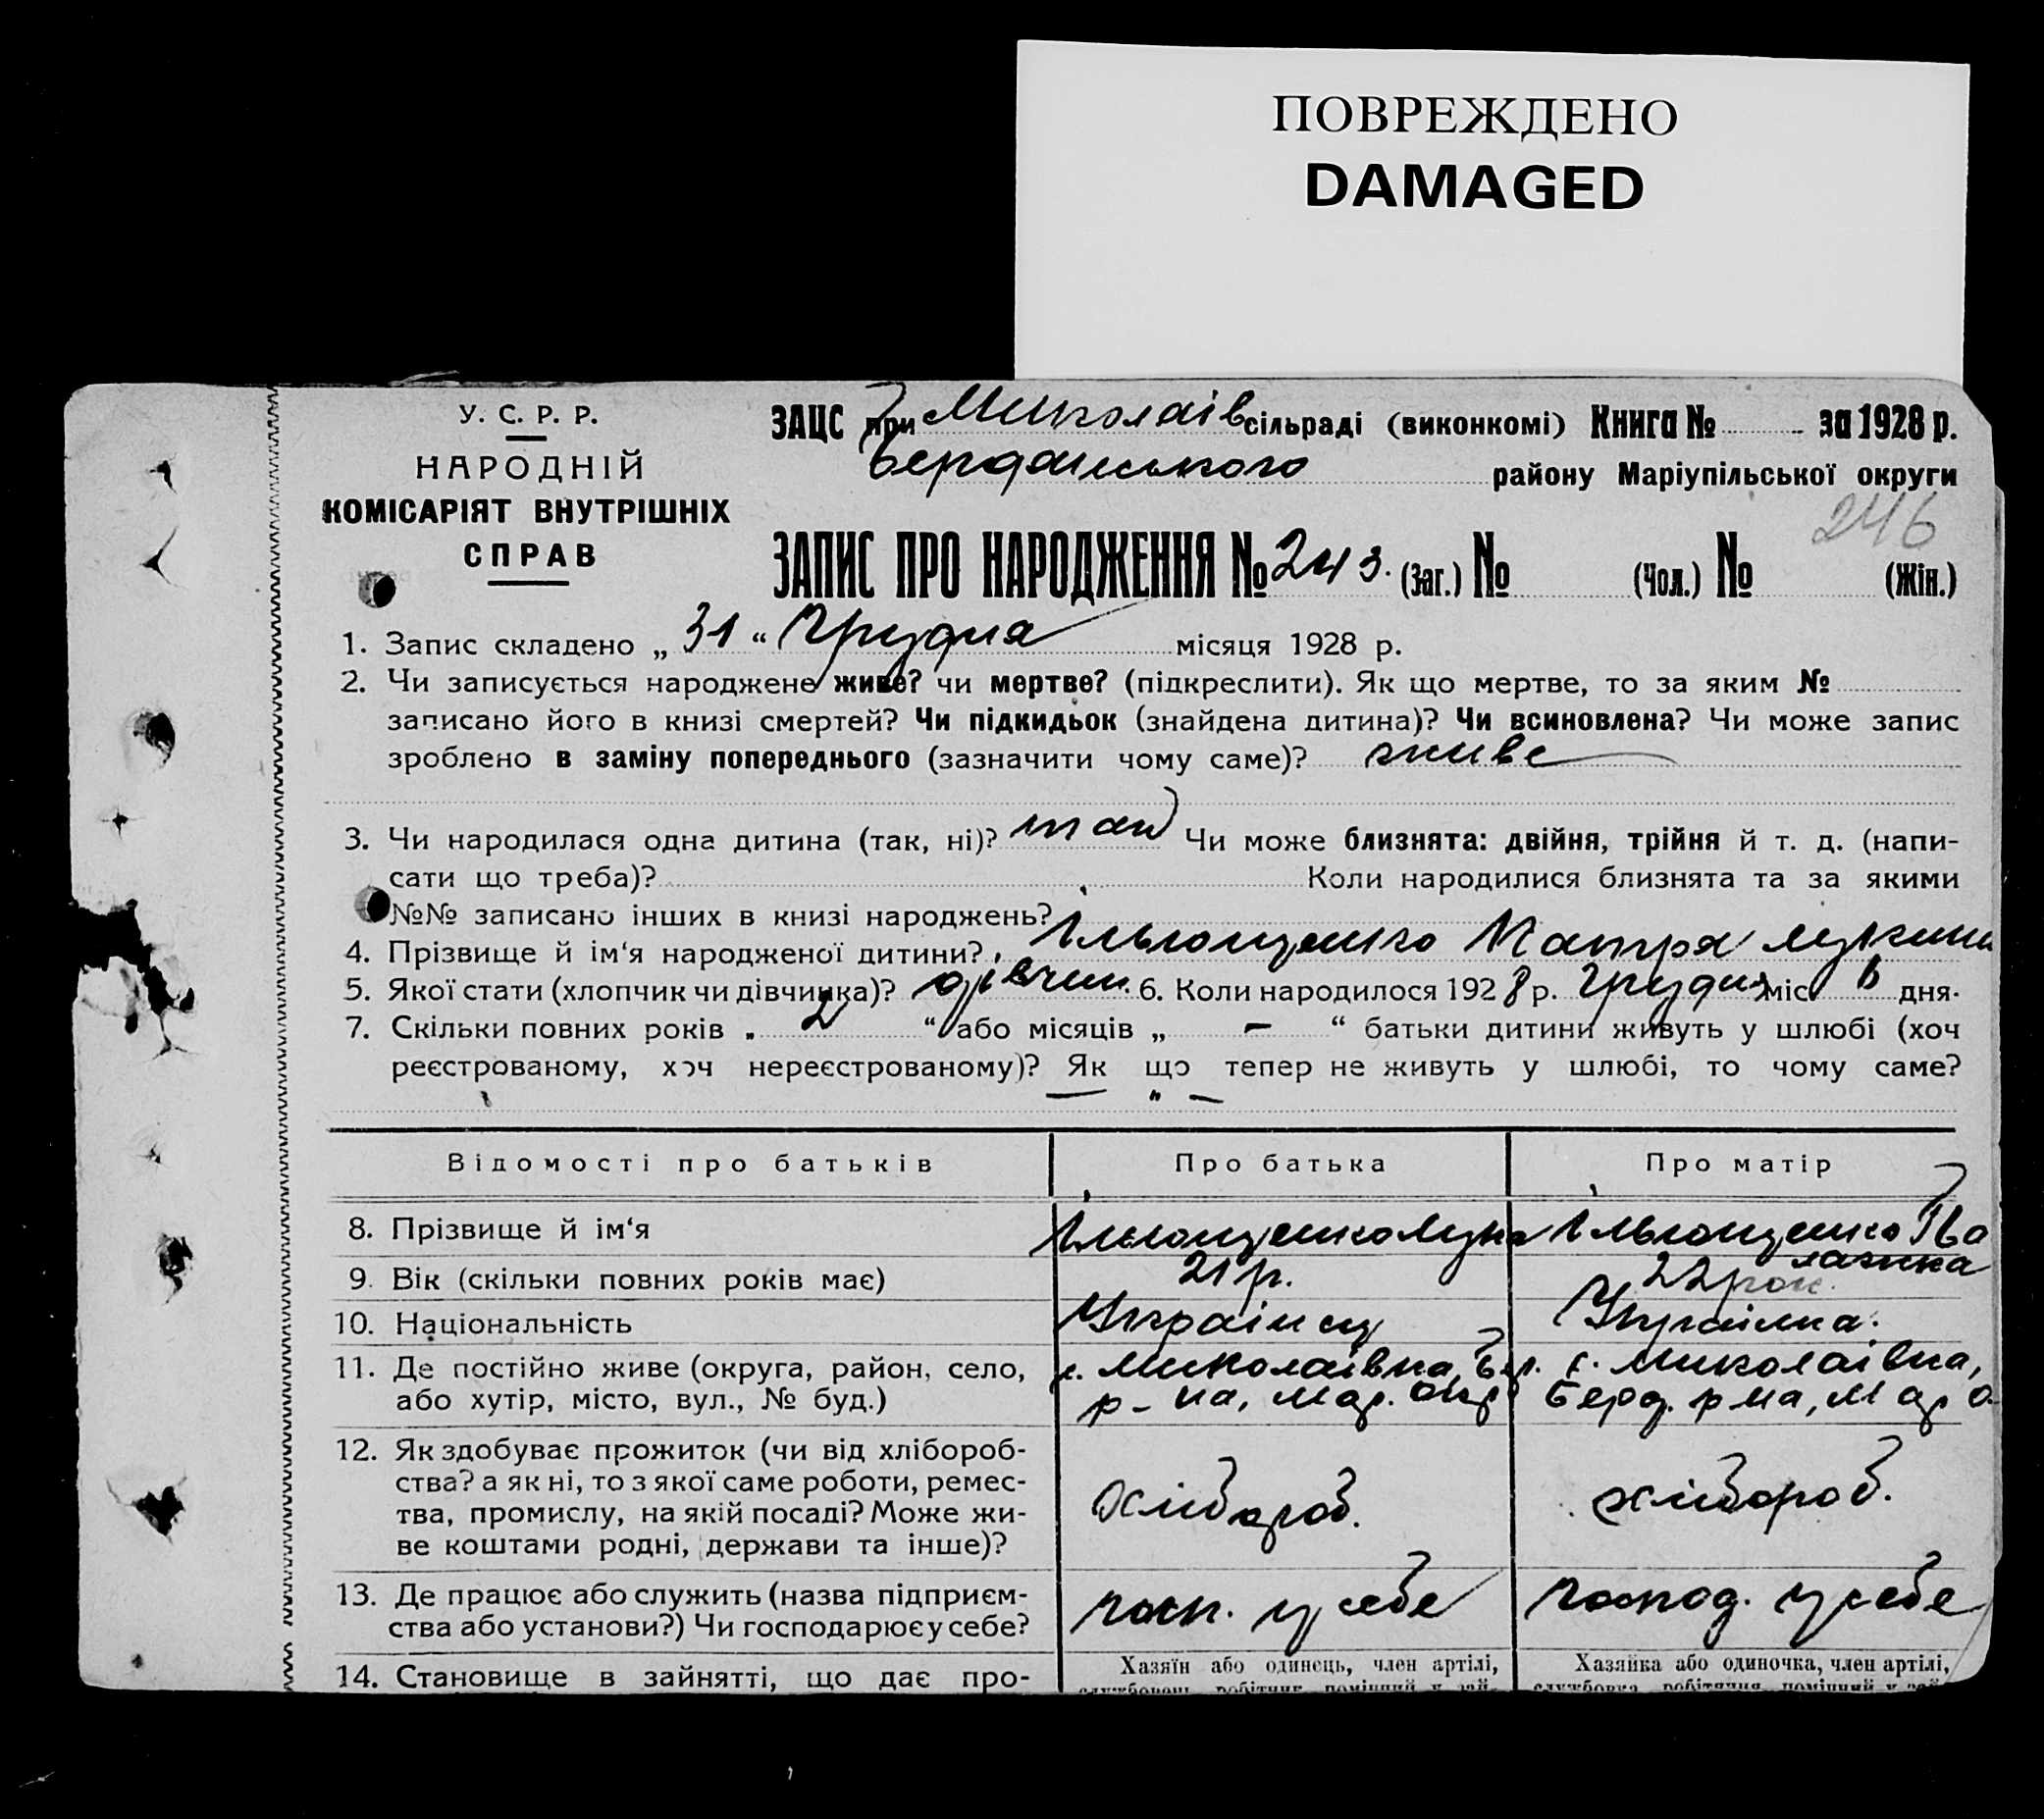 ПОВРЕЖДЕНО
DAMAGED
У. С. Р. Р.
НАРОДНІЙ
КОМІСАРІЯТ ВНУТРІШНІХ
СПРАВ
ЗАЦС при Миколаів сільраді (виконкомі) Книга № за 1928 р.
Бердянського району Маріупільської округи
246
ЗАПИС ПРО НАРОДЖЕННЯ № 243. (Заг.) № (Чол.) № (Жін.)
1. Запис складено „ 31 “ Грудня місяця 1928 р.
2. Чи записується народжене живе? чи мертве? (підкреслити). Як що мертве, то за яким №
записано його в книзі смертей? Чи підкидьок (знайдена дитина)? Чи всиновлена? Чи може запис
зроблено в заміну попереднього (зазначити чому саме)? живе
3. Чи народилася одна дитина (так, ні)? так Чи може близнята: двійня, трійня й т. д. (напи-
сати що треба)? Коли народилися близнята та за якими
№№ записано інших в книзі народжень?
4. Прізвище й ім‘я народженої дитини? Ільющенко
5. Якої стати (хлопчик чи дівчинка)? дівчин. 6. Коли народилося 1928 р. Грудня міс. 6 дня.
7. Скільки повних років „ 2 “ або місяців „ – “ батьки дитини живуть у шлюбі (хоч
реєстрованому, хоч нереєстрованому)? Як що тепер не живуть у шлюбі, то чому саме?
— „ —
Відомості про батьків Про батька Про матір
8. Прізвище й ім‘я Ільющенко Лука Ільющенко
9. Вік (скільки повних років має) 21 р. 22 рок.
10. Національність Українец Українка.
11. Де постійно живе (округа, район, село, с. Миколаівка, Бер. с. Миколаівка,
або хутір, місто, вул., № буд.) р-на, Мар. Окр Берд. р на, Мар О.
12. Як здобуває прожиток (чи від хлібороб-
ства? а як ні, то з якої саме роботи, ремес-
тва, промислу, на якій посаді? Може жи- Хлібороб. хлібороб.
ве коштами родні, держави та інше)?
13. Де працює або служить (назва підприєм- госп. у себе господ. у себе
ства або установи?) Чи господарює у себе?
14. Становище в зайнятті, що дає про- Хазяїн або одинець, член артілі, Хазяйка або одиночка, член артілі,